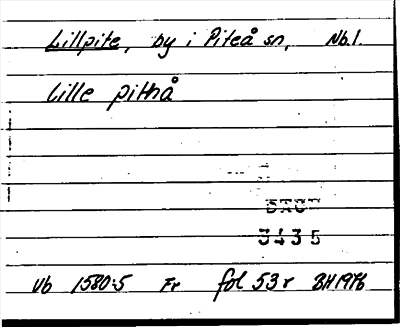 Lillpite, by i Piteå sn, Nb.l.
Lille pithå
3435
Vb 1580:5 Fr fol 53r BH1976